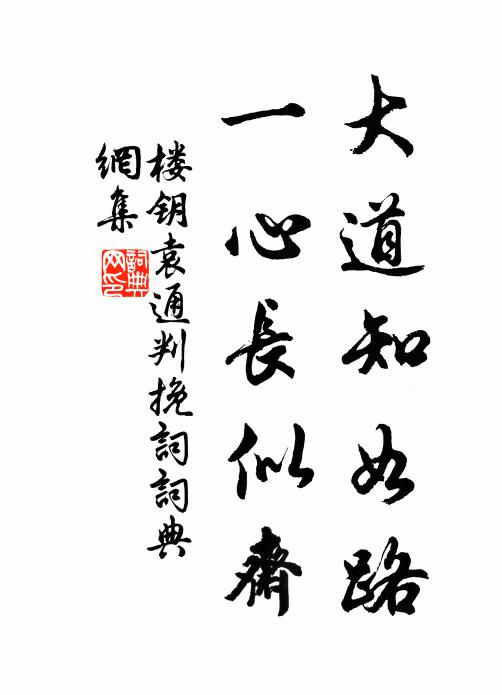 大道知如路
一心長似齋
楼钥袁通判挽詞詞典
網集
詞典网印